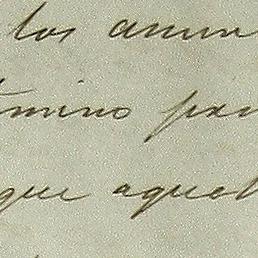 los anun
mino par
que aquel